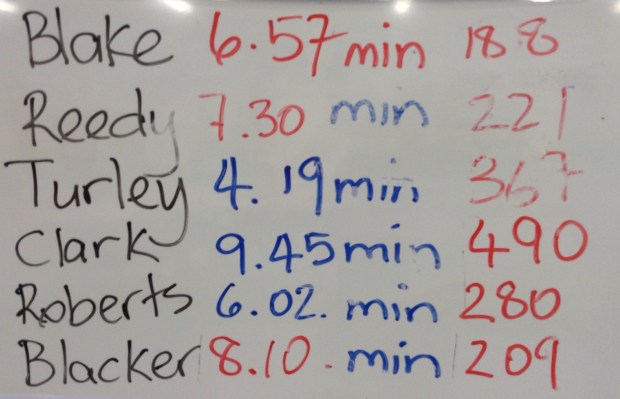 Blake 6.57 min 188
Reedy 7.30 min 221
Turley 4.19 min 367
Clark 9.45 min 490
Roberts 6.02. min 280
Blacker 8.10. min 209